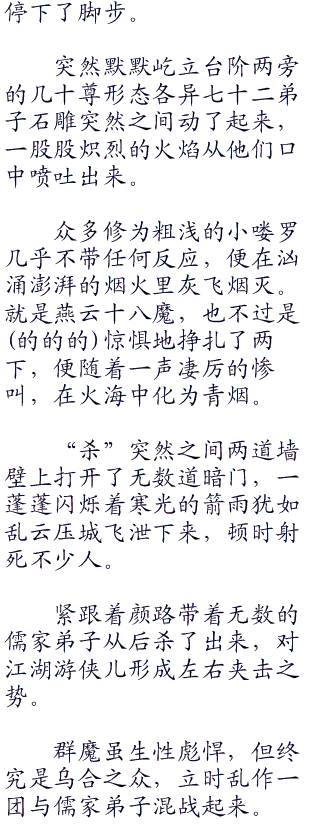 停下了脚步。
突然默默屹立台阶两旁
的几十尊形态各异七十二弟
子石雕突然之间动了起来，
一股股炽烈的火焰从他们口
中喷吐出来。
众多修为粗浅的小喽罗
几乎不带任何反应，便在汹
涌澎湃的烟火里灰飞烟灭。
就是燕云十八魔，也不过是
(的的的)惊惧地挣扎了两
下，便随着一声凄厉的惨
叫，在火海中化为青烟。
“杀”突然之间两道墙
壁上打开了无数道暗门，一
蓬蓬闪烁着寒光的箭雨犹如
乱云压城飞泄下来，顿时射
死不少人。
紧跟着颜路带着无数的
儒家弟子从后杀了出来，对
江湖游侠儿形成左右夹击之
势。
群魔虽生性彪悍，但终
究是乌合之众，立时乱作一
团与儒家弟子混战起来。